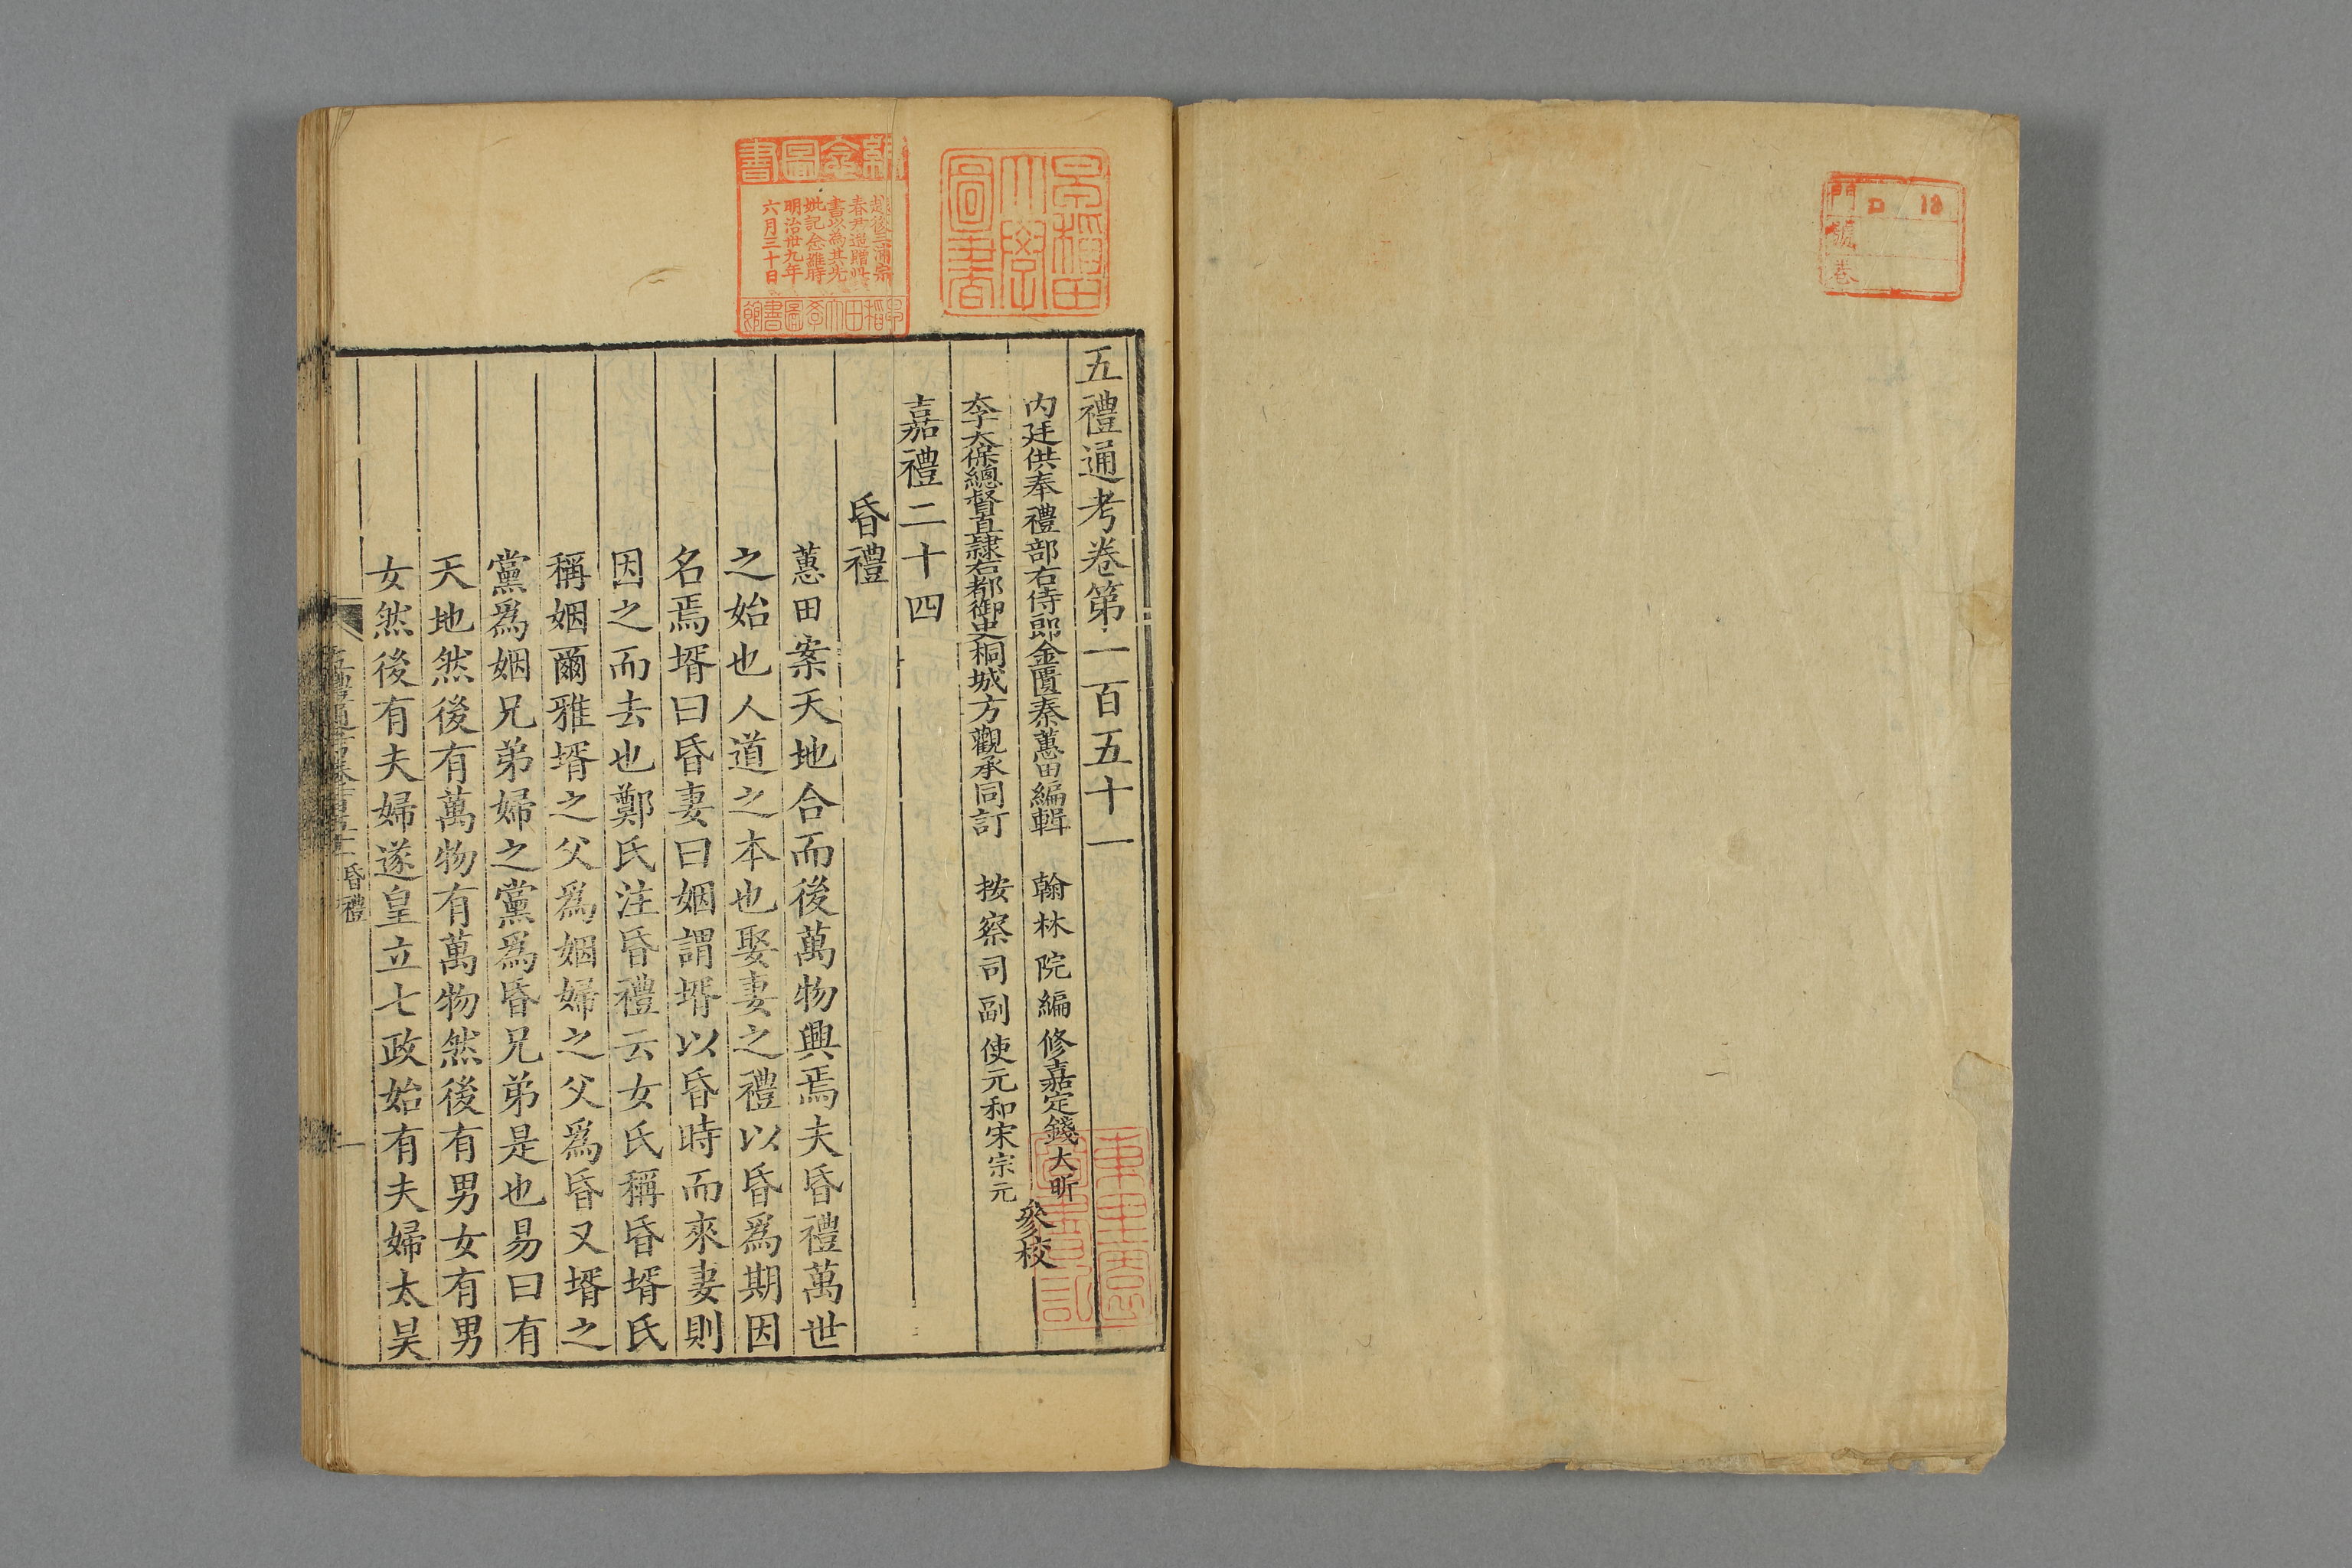 門
號
巷
ロ 13
五禮通考卷第一百五十一
內廷供奉禮部右侍郎金匱秦蕙田編輯 翰林院編修嘉定錢大昕
李太保總督直隸右都御史桐城方觀承同訂 按察司副使元和宋宗元
參校
嘉禮二十四
昏禮
蕙田案天地合而後萬物興焉夫昏禮萬世
之始也人道之本也娶妻之禮以昏爲期因
名焉壻曰昏妻曰姻謂壻以昏時而來妻則
因之而去也鄭氏注昏禮云女氏稱昏壻氏
稱姻爾雅壻之父爲姻婦之父爲昏又壻之
黨爲姻兄弟婦之黨爲昏兄弟是也易曰有
天地然後有萬物有萬物然後有男女有男
女然後有夫婦遂皇立七政始有夫婦太昊
五禮通考卷一百五十一 昏禮 一
早稻田
大學
圖書
念圖書
後三浦宗
春尹遺贈此
書以為其先
妣記念雖時
明治卅九年
六月三十日
早稻田大學圖書館